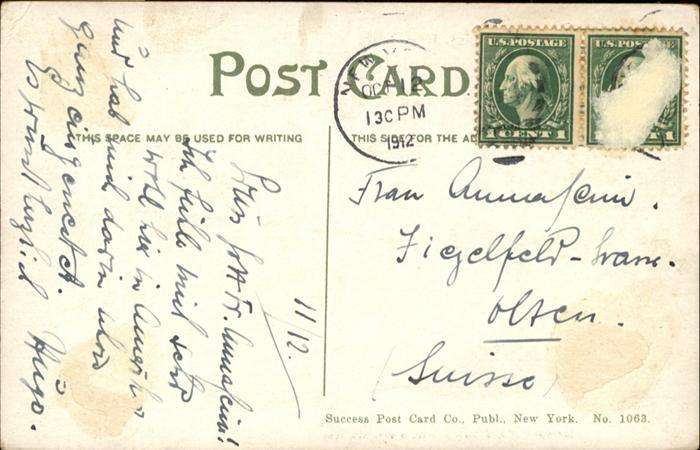 POST CARD
THIS SPACE MAY BE USED FOR WRITING
THIS SIDE FOR THE AD
NEW Y
OCT 12
130 PM
1912
U.S. POSTAGE
1 CENT 1
U.S. POSTAGE
1
Frau Annaheim.
Ziegelfeld-
Olten.
(Suisse)
11/12.
Grüss Gott Fr. Annaheim!
Ich fühle mich sehr
wohl hier in Amerika
und hab mich darin schon
ganz eingenistet.
Es grüsst herzlich
Hugo.
Success Post Card Co., Publ., New York. No. 1063.